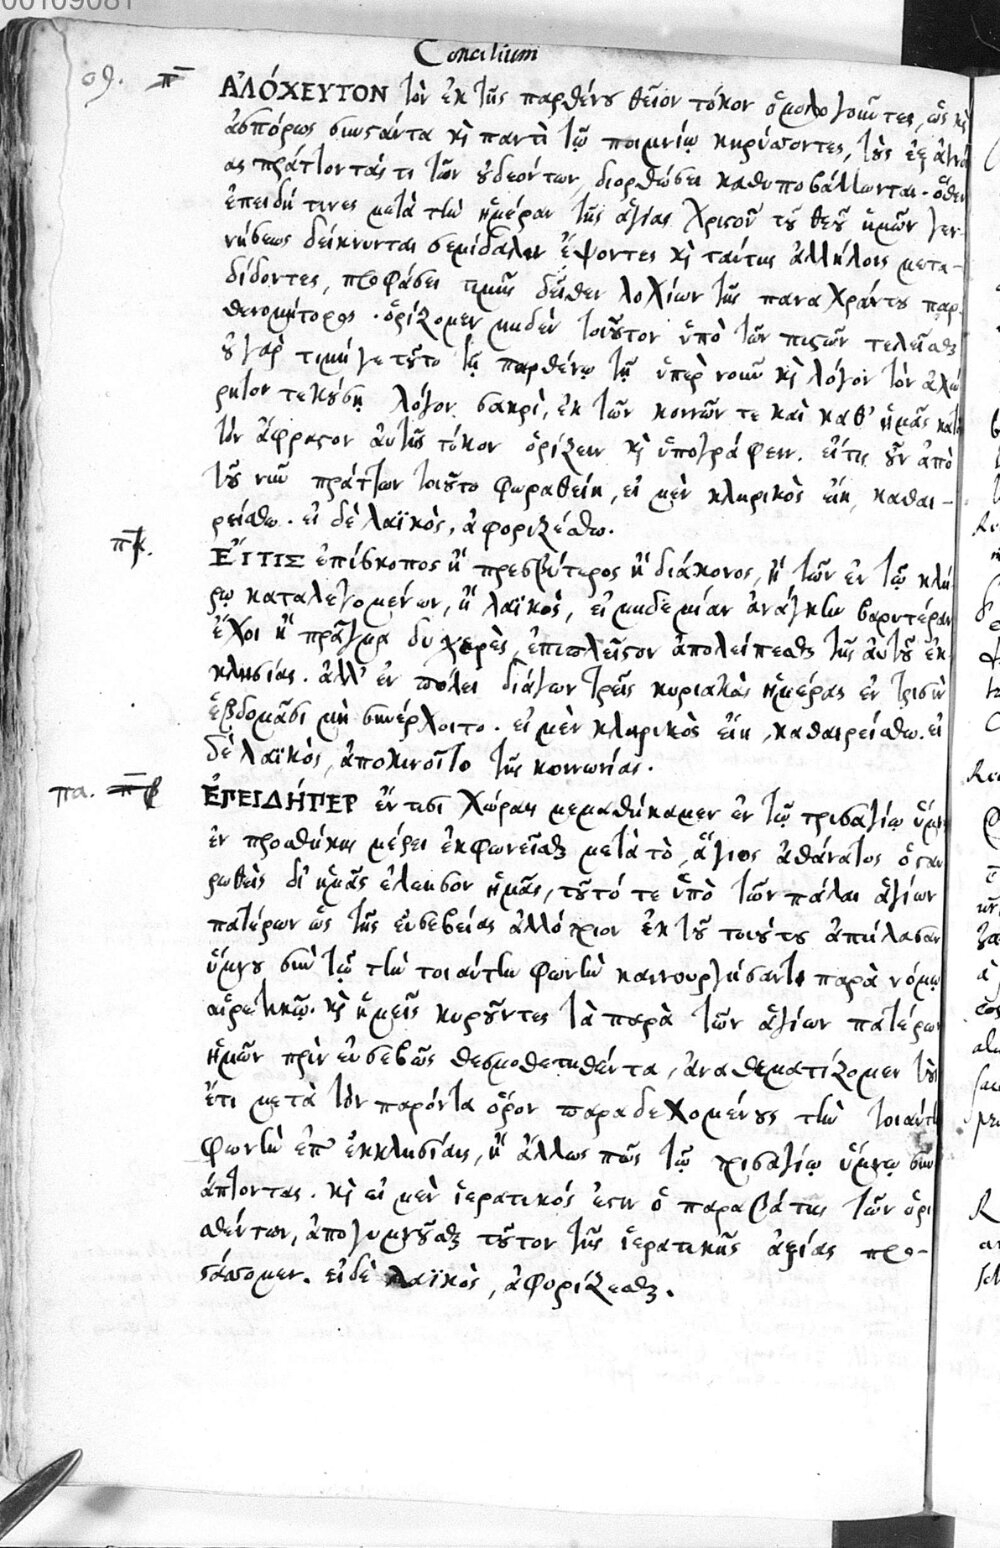 00109081
Concilium
οθ. π
ἈΛΌΧΕΥΤΟΝ τὸν ἐκ τῆς παρθένου θεῖον τόκον ὁμολογοῦντες, ὡς κỳ
ἀσπόρως συστάντα κỳ παντὶ τῷ ποιμνίῳ κηρύσσοντες, τοὺς ἐξ ἀγνοί
ας πράττοντάς τι τῶν οὐ δεόντων, διορθώσει καθυποβάλλονται. ὅθεν
ἐπειδή τινες μετὰ τὴν ἡμέραν τῆς ἁγίας Χριστοῦ τοῦ θεοῦ ἡμῶν γεν-
νήσεως δείκνυνται σεμίδαλιν ἕψοντες κỳ ταύτης ἀλλήλοις μετα-
δίδοντες, προφάσει τιμῆς δῆθεν λοχίων τῆς παναχράντου παρ-
θενομήτορος. ὁρίζομεν μηδὲν τοιοῦτον ὑπὸ τῶν πιστῶν τελεῖσθαι
οὐ γὰρ τιμή γε τοῦτο τῇ παρθένῳ τῇ ὑπὲρ νοῦν κỳ λόγον τὸν ἀχώ
ρητον τεκούσῃ λόγον σαρκὶ, ἐκ τῶν κοινῶν τε καὶ καθ' ἡμᾶς κατὰ
τὸν ἄφραστον αὐτῆς τόκον ὁρίζειν κỳ ὑπογράφειν. εἴτις οὖν ἀπὸ
τοῦ νῦν πράττων τοιοῦτο φωραθείη, εἰ μὲν κληρικὸς εἴη, καθαι-
ρείσθω. εἰ δὲ λαϊκὸς, ἀφοριζέσθω.
π.
ΕἼΤΙΣ ἐπίσκοπος ἢ πρεσβύτερος ἢ διάκονος, ἢ τῶν ἐν τῷ κλή
ρῳ καταλεγομένων, ἢ λαϊκός, εἰ μηδεμίαν ἀνάγκην βαρυτέραν
ἔχοι ἢ πρᾶγμα δυσχερὲς, ἐπιπλεῖστον ἀπολείπεσθαι τῆς αὐτοῦ ἐκ
κλησίας. ἀλλ' ἐν πόλει διάγων τρεῖς κυριακὰς ἡμέρας ἐν τρισὶν
ἑβδομάσι μὴ συνέρχοιτο. εἰ μὲν κληρικὸς εἴη, καθαιρείσθω. εἰ
δὲ λαϊκὸς, ἀποκινοῖτο τῆς κοινωνίας.
πα.
ἘΠΕΙΔΉΠΕΡ ἔν τισι χώραις μεμαθήκαμεν ἐν τῷ τρισαγίῳ ὕμνῳ
ἐν προσθήκης μέρει ἐκφωνεῖσθαι μετὰ τὸ, ἅγιος ἀθάνατος ὁ σταυ
ρωθεὶς δι' ἡμᾶς ἐλέησον ἡμᾶς, τοῦτό τε ὑπὸ τῶν πάλαι ἁγίων
πατέρων ὡς τῆς εὐσεβείας ἀλλότριον ἐκ τοῦ τοιούτου ἀπήλασαν
ὕμνου σὺν τῷ τὴν τοιαύτην φωνὴν καινουργήσαντι παρανόμῳ
αἱρετικῷ. κỳ ἡμεῖς κυροῦντες τὰ παρὰ τῶν ἁγίων πατέρων
ἡμῶν πρὶν εὐσεβῶς θεσμοθετηθέντα, ἀναθεματίζομεν τοὺς
ἔτι μετὰ τὸν παρόντα ὅρον παραδεχομένους τὴν τοιαύτην
φωνὴν ἐπ' ἐκκλησίαις, ἢ ἄλλως πως τῷ τρισαγίῳ ὕμνῳ συν
άπτοντας. κỳ εἰ μὲν ἱερατικός ἐστιν ὁ παραβάτης τῶν ὁρι
σθέντων, ἀπογυμνοῦσθαι τοῦτον τῆς ἱερατικῆς ἀξίας προ-
στάσσομεν. εἰ δὲ λαϊκὸς, ἀφορίζεσθαι.